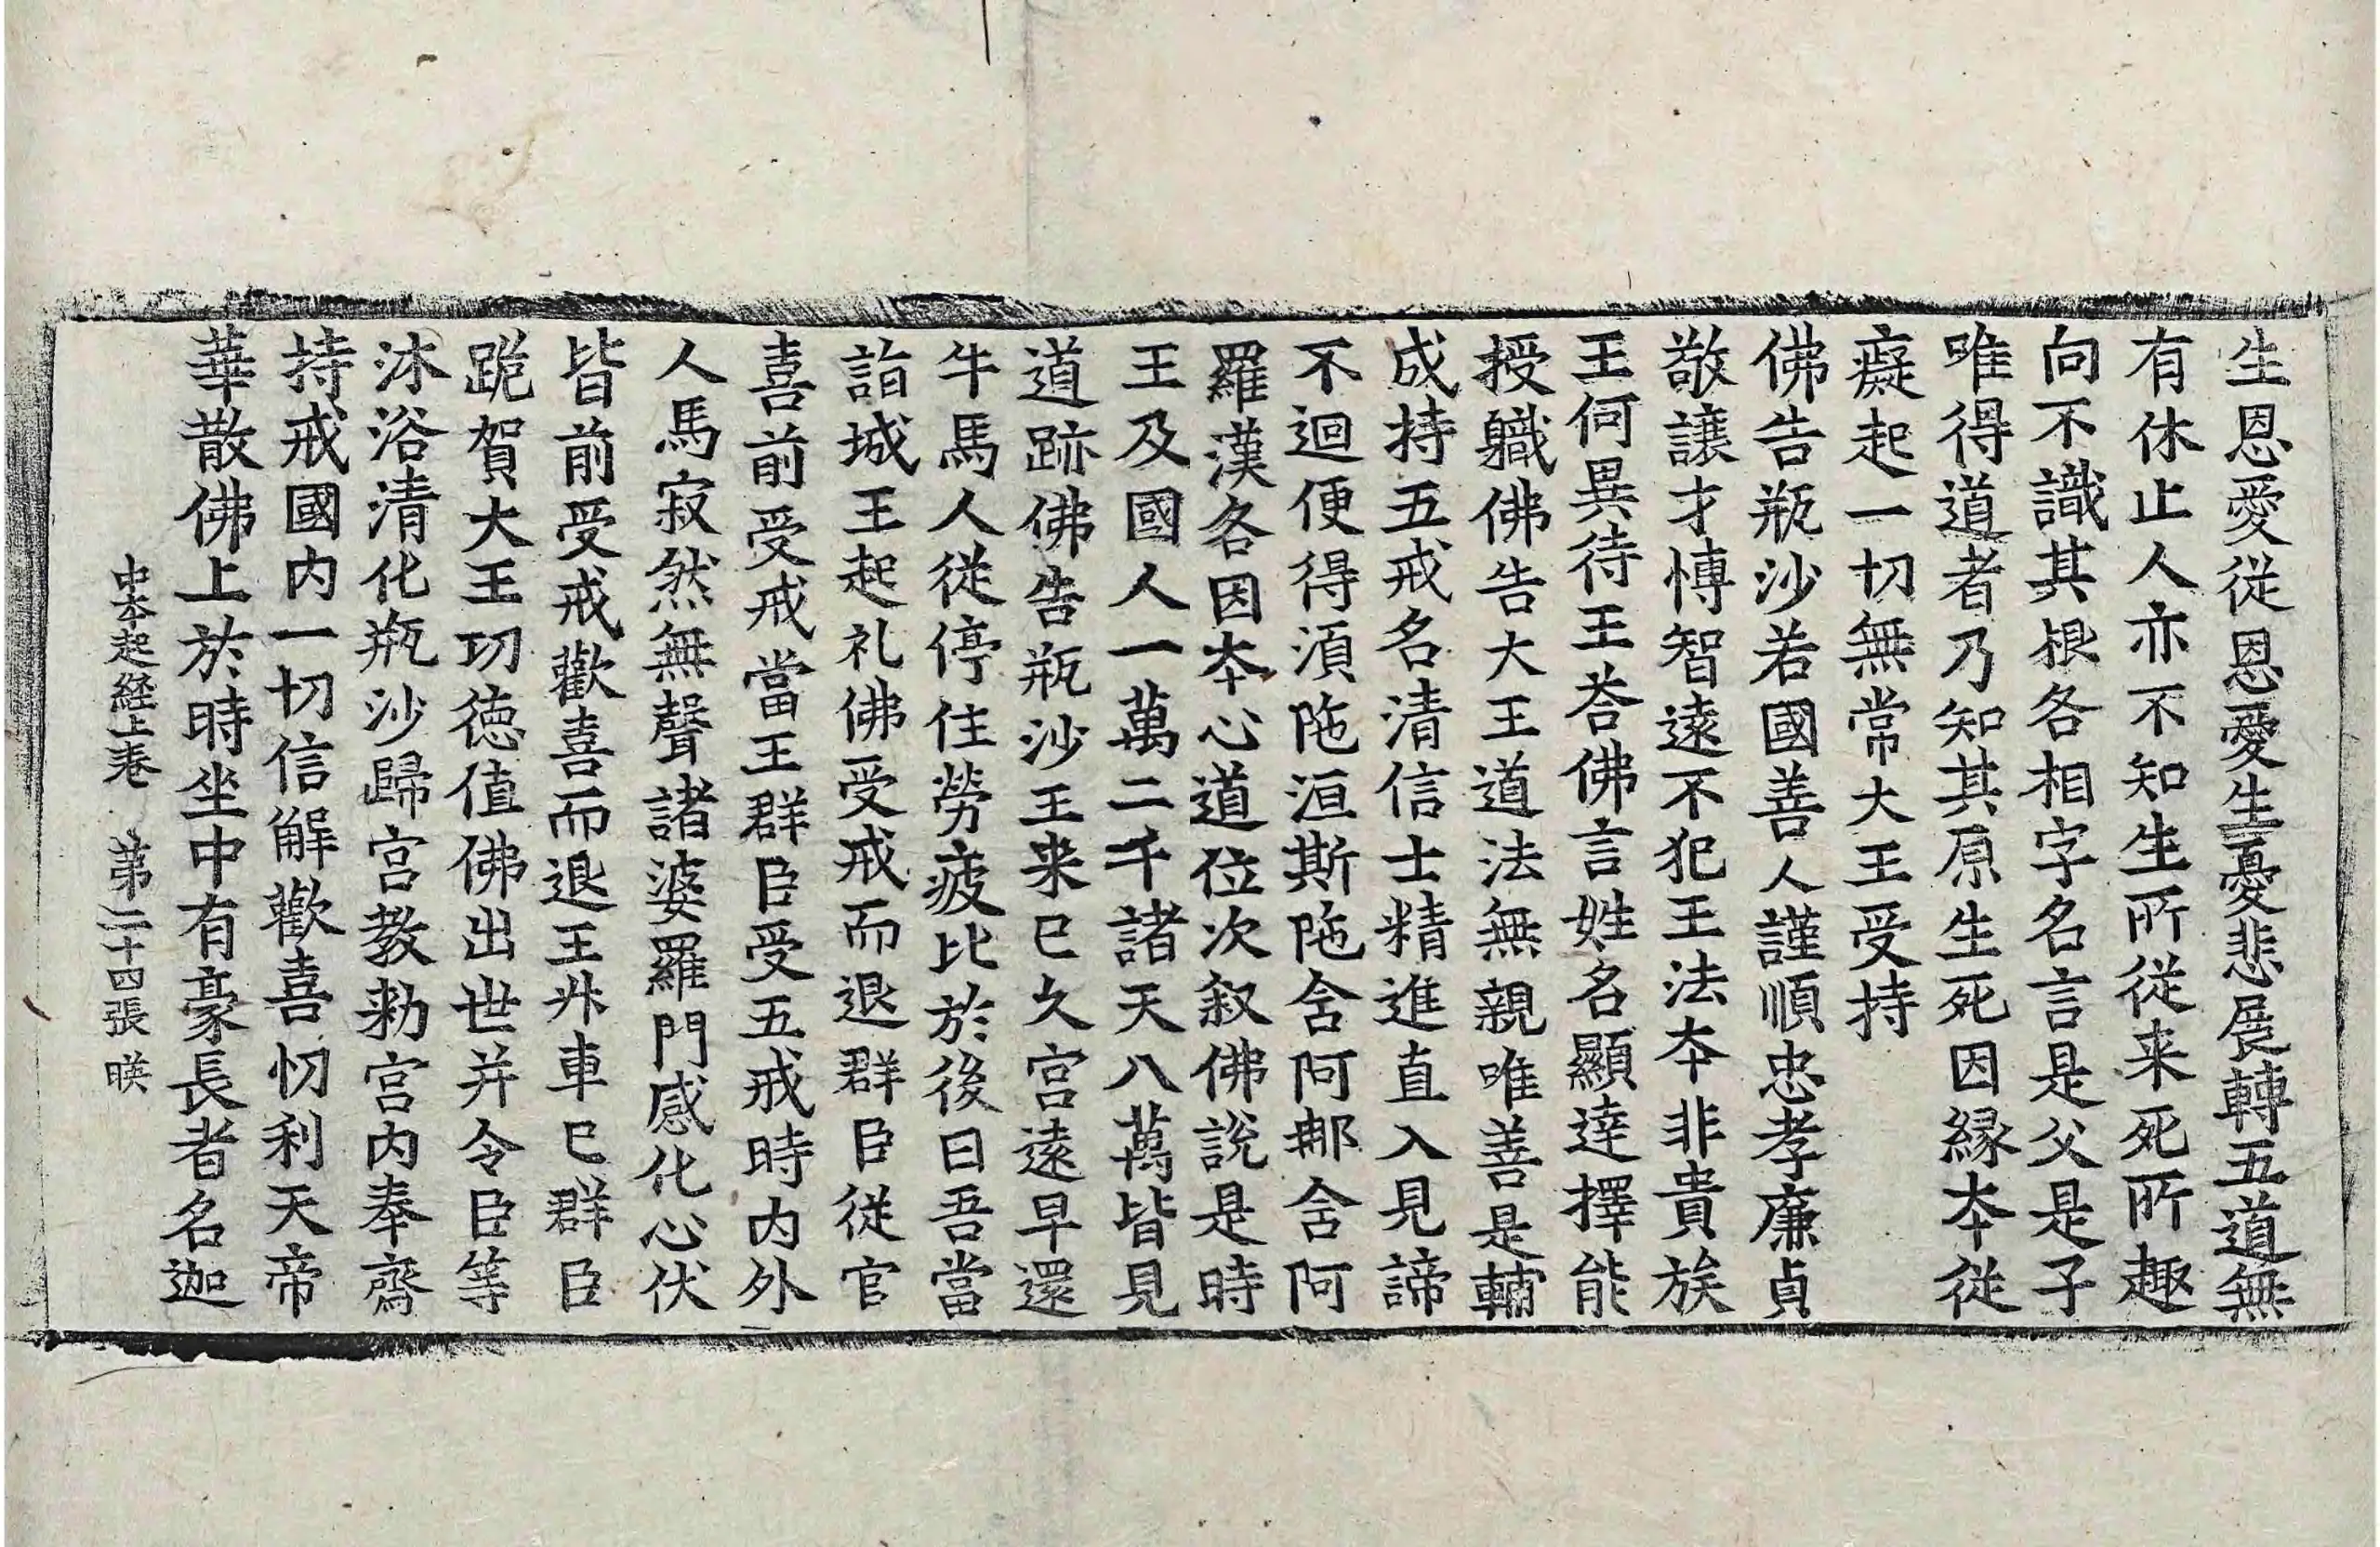 生恩愛從恩愛生憂悲展轉五道無
有休止人亦不知生所從来死所趣
向不識其根各相字名言是父是子
唯得道者乃知其原生死因縁夲從
癡起一切無常大王受持
佛告瓶沙若國善人謹順忠孝廉貞
敬讓才博智遠不犯王法夲非貴族
王何異待王荅佛言姓名顯達擇能
授軄佛告大王道法無親唯善是輔
成持五戒名清信士精進直入見諦
不迴便得湏陁洹斯陁含阿那含阿
羅漢各因夲心道位次叙佛說是時
王及國人一萬二千諸天八萬皆見
道跡佛告瓶沙王来已久宫遠早還
牛馬人從停住勞疲比於後日吾當
詣城王起礼佛受戒而退群臣從官
喜前受戒當王群臣受五戒時内外
人馬寂然無聲諸婆羅門感化心伏
皆前受戒歡喜而退王升車已群臣
跪賀大王功德值佛出世并令臣等
沐浴清化瓶沙歸宫教勑宫内奉齋
持戒國内一切信解歡喜忉利天帝
華散佛上於時坐中有豪長者名迦
中夲起経上卷　第二十四張　暎